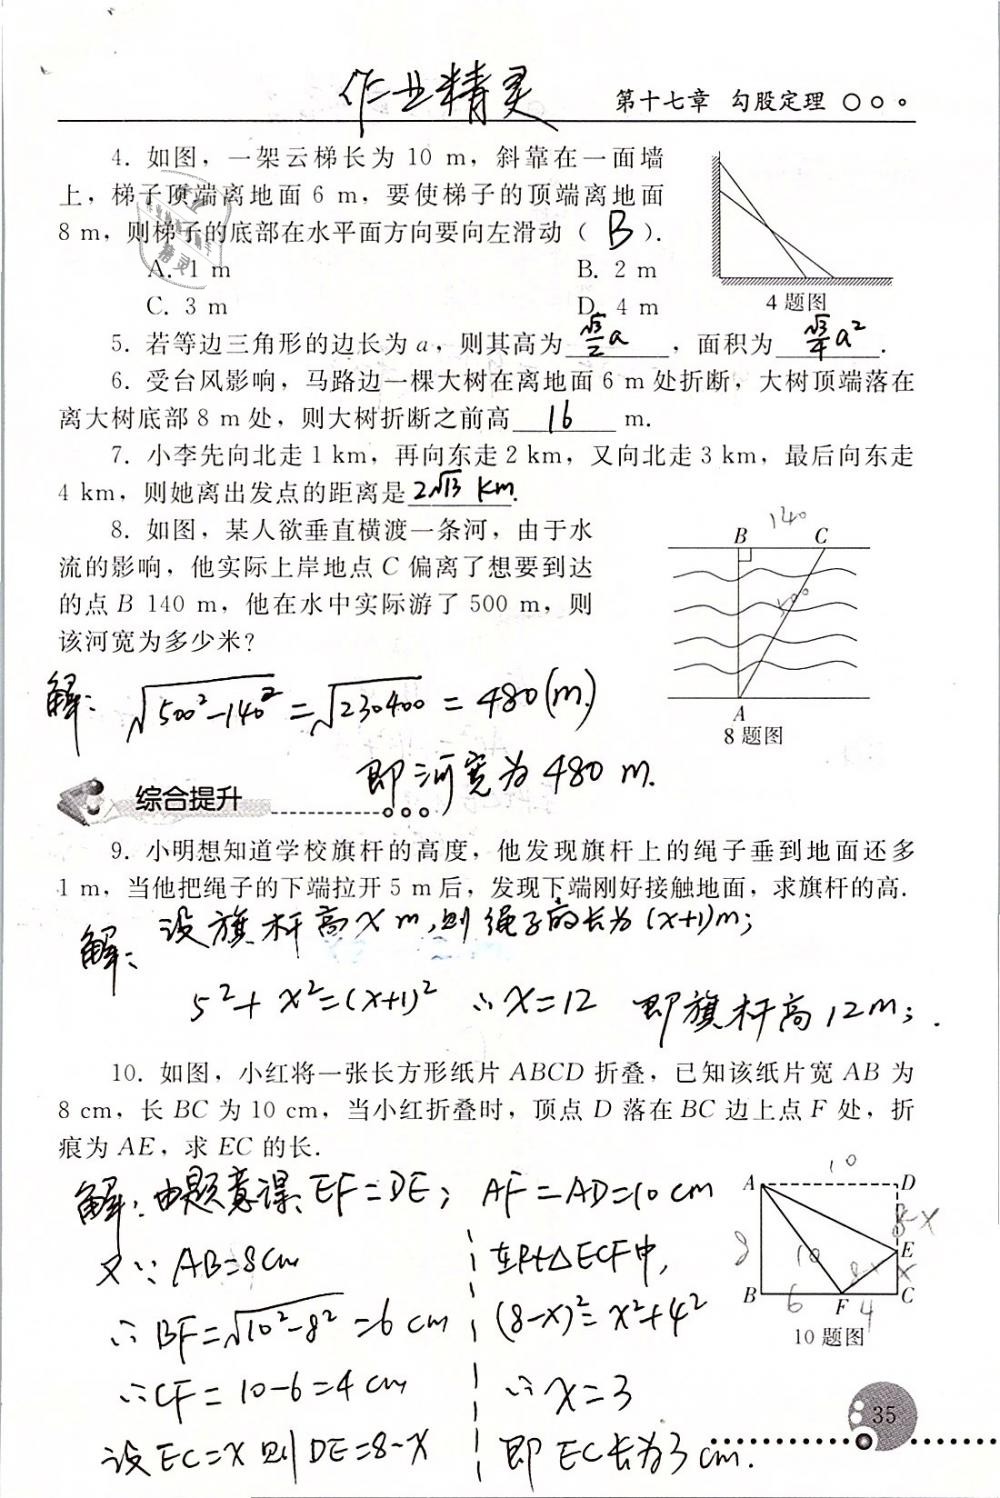 作业精灵
第十七章 勾股定理
4. 如图，一架云梯长为 10 m，斜靠在一面墙
上，梯子顶端离地面 6 m，要使梯子的顶端离地面
8 m，则梯子的底部在水平面方向要向左滑动（ B ）.
A. 1 m B. 2 m
C. 3 m D. 4 m
4 题图
5. 若等边三角形的边长为 a，则其高为 √3/2 a，面积为 √3/4 a².
6. 受台风影响，马路边一棵大树在离地面 6 m 处折断，大树顶端落在
离大树底部 8 m 处，则大树折断之前高 16 m.
7. 小李先向北走 1 km，再向东走 2 km，又向北走 3 km，最后向东走
4 km，则她离出发点的距离是 2√13 km.
8. 如图，某人欲垂直横渡一条河，由于水
流的影响，他实际上岸地点 C 偏离了想要到达
的点 B 140 m，他在水中实际游了 500 m，则
该河宽为多少米?
140
B C
500
A
8 题图
解: √500²-140² = √230400 = 480(m)
即河宽为 480 m.
综合提升
9. 小明想知道学校旗杆的高度，他发现旗杆上的绳子垂到地面还多
1 m，当他把绳子的下端拉开 5 m 后，发现下端刚好接触地面，求旗杆的高.
解: 设旗杆高 x m,则绳子的长为 (x+1)m;
5²+x²=(x+1)² ∴x=12 即旗杆高 12m;.
10. 如图，小红将一张长方形纸片 ABCD 折叠，已知该纸片宽 AB 为
8 cm，长 BC 为 10 cm，当小红折叠时，顶点 D 落在 BC 边上点 F 处，折
痕为 AE，求 EC 的长.
解: 由题意得: EF=DE; AF=AD=10 cm
又∵ AB=8cm
∴ BF=√10²-8² =6 cm
∴CF= 10-6=4 cm
设 EC=x 则 DE=8-x
在Rt△ECF中,
(8-x)²=x²+4²
∴ x=3
即 EC长为3 cm.
10
A D
8-x
8 10 8-x E x
B 6 F 4 C
10 题图
35